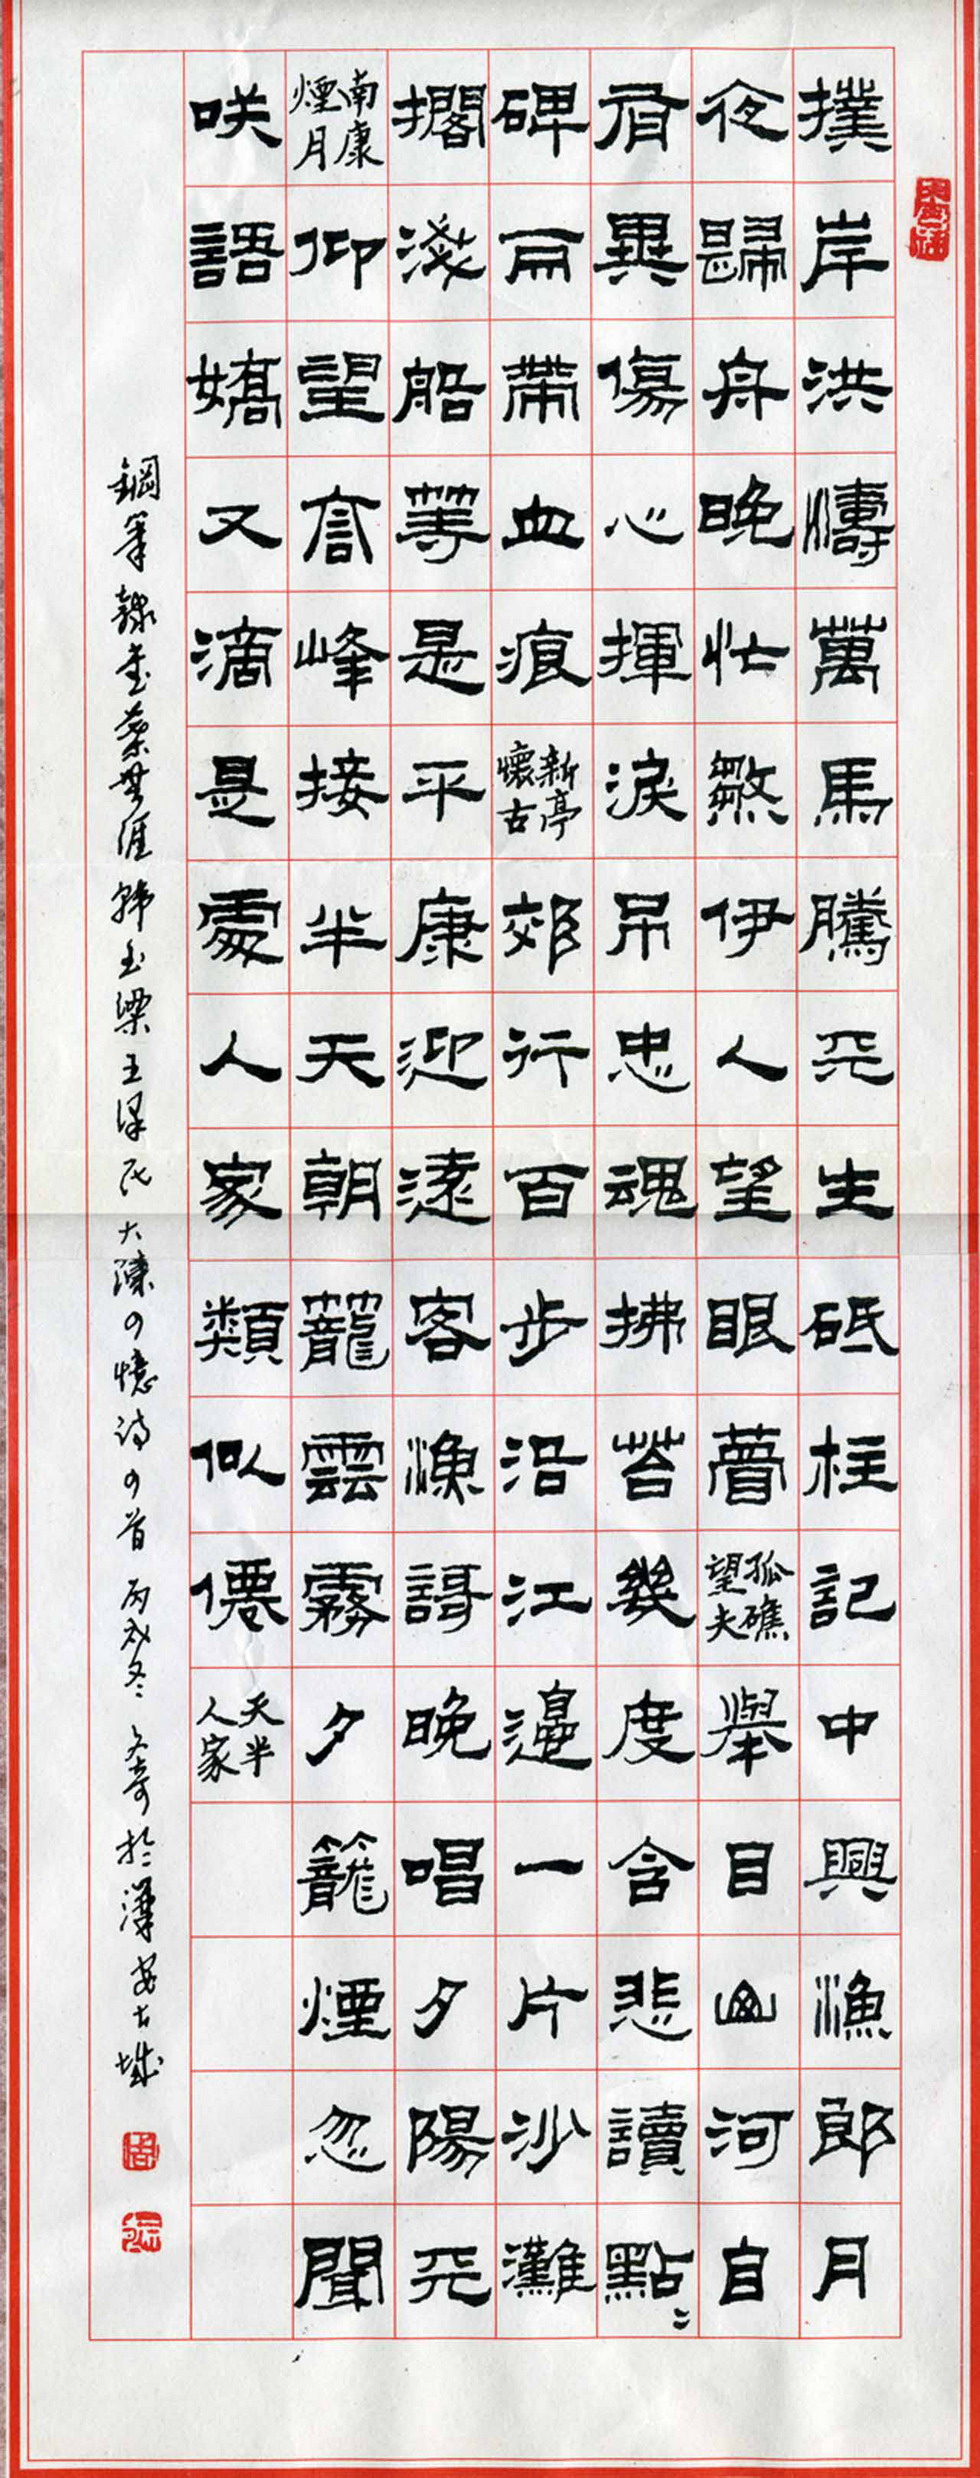 撲岸洪濤萬馬騰死生砥柱記中興漁郎月
夜歸舟晚忙煞伊人望眼瞢孤礁望夫舉目山河自
有異傷心揮淚吊忠魂拂苔幾度含悲讀點〻
碑函帶血痕新亭懷古郊行百步沿江邊一片沙灘
擱淺船等是平康迎遠客漁歌晚唱夕陽天
南康煙月仰望高峰接半天朝籠雲霧夕籠煙忽聞
咲語嬌又滴是處人家類似僊天半人家
鋼筆隸書蔡無涯韓玉梁王澤民大陳四憶詩四首丙戌冬文奇於漢安古城